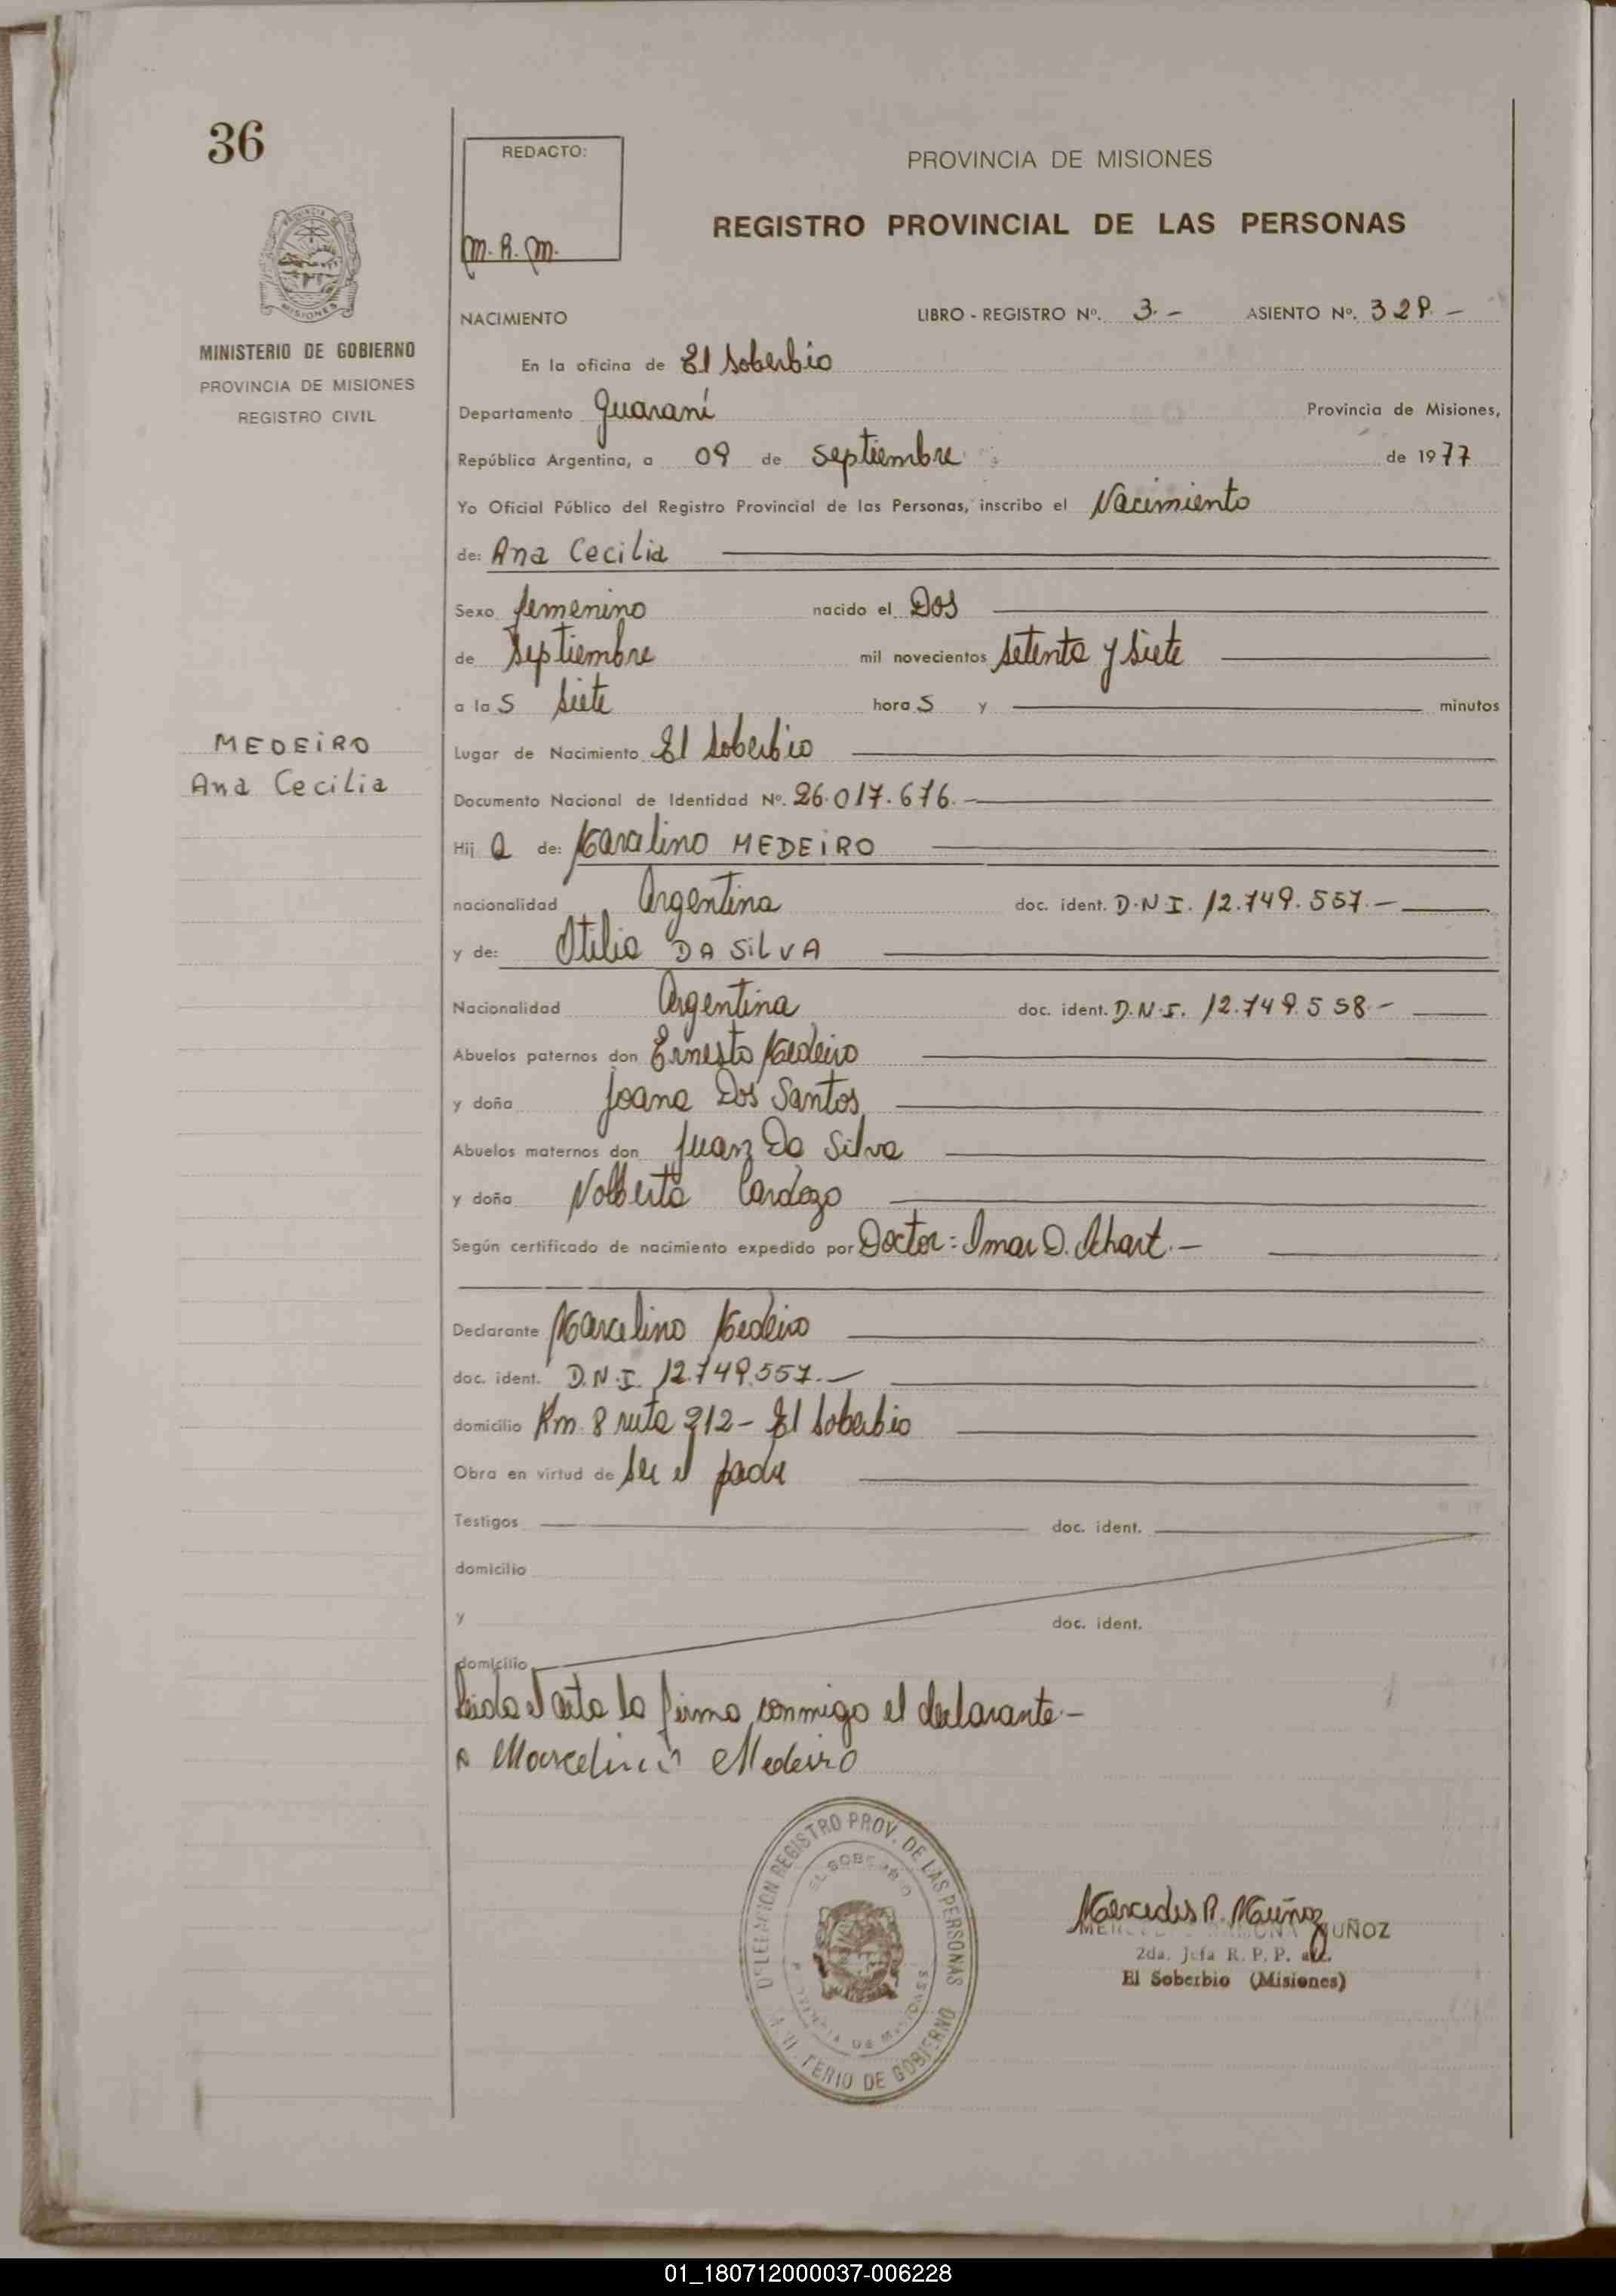 36
REDACTO:
M. R. M.
PROVINCIA DE MISIONES
REGISTRO PROVINCIAL DE LAS PERSONAS
MISIONES
MINISTERIO DE GOBIERNO
PROVINCIA DE MISIONES
REGISTRO CIVIL
NACIMIENTO LIBRO - REGISTRO Nº. 3.- ASIENTO Nº. 328.-
En la oficina de El Soberbio
Departamento Guaraní Provincia de Misiones,
República Argentina, a 09 de septiembre de 1977
Yo Oficial Público del Registro Provincial de las Personas, inscribo el Nacimiento
de: Ana Cecilia
Sexo femenino nacido el Dos
de Septiembre mil novecientos setenta y siete
a las siete horas y minutos
MEDEIRO
Ana Cecilia
Lugar de Nacimiento El Soberbio
Documento Nacional de Identidad Nº. 26.017.676.-
Hija de: Marcelino MEDEIRO
nacionalidad Argentina doc. ident. D.N.I. 12.749.557.-
y de: Otilia DA SILVA
Nacionalidad Argentina doc. ident. D.N.I. 12.749.558.-
Abuelos paternos don Ernesto Medeiro
y doña Joana Dos Santos
Abuelos maternos don Juan Da Silva
y doña Nolberta Cardozo
Según certificado de nacimiento expedido por Doctor: Imar D.
Declarante Marcelino Medeiro
doc. ident. D.N.I. 12.749.557.-
domicilio Km. 8 ruta 212- El Soberbio
Obra en virtud de ser el padre
Testigos doc. ident.
domicilio
y doc. ident.
domicilio
Leida el acta la firma conmigo el declarante.-
Marcelino Medeiro
DELEGACION REGISTRO PROV. DE LAS PERSONAS
EL SOBERBIO
PROVINCIA DE MISIONES
MINISTERIO DE GOBIERNO
Mercedes R. Muñoz
MERCEDES RAMONA MUÑOZ
2da. Jefa R. P. P. a/c.
El Soberbio (Misiones)
01_180712000037-006228